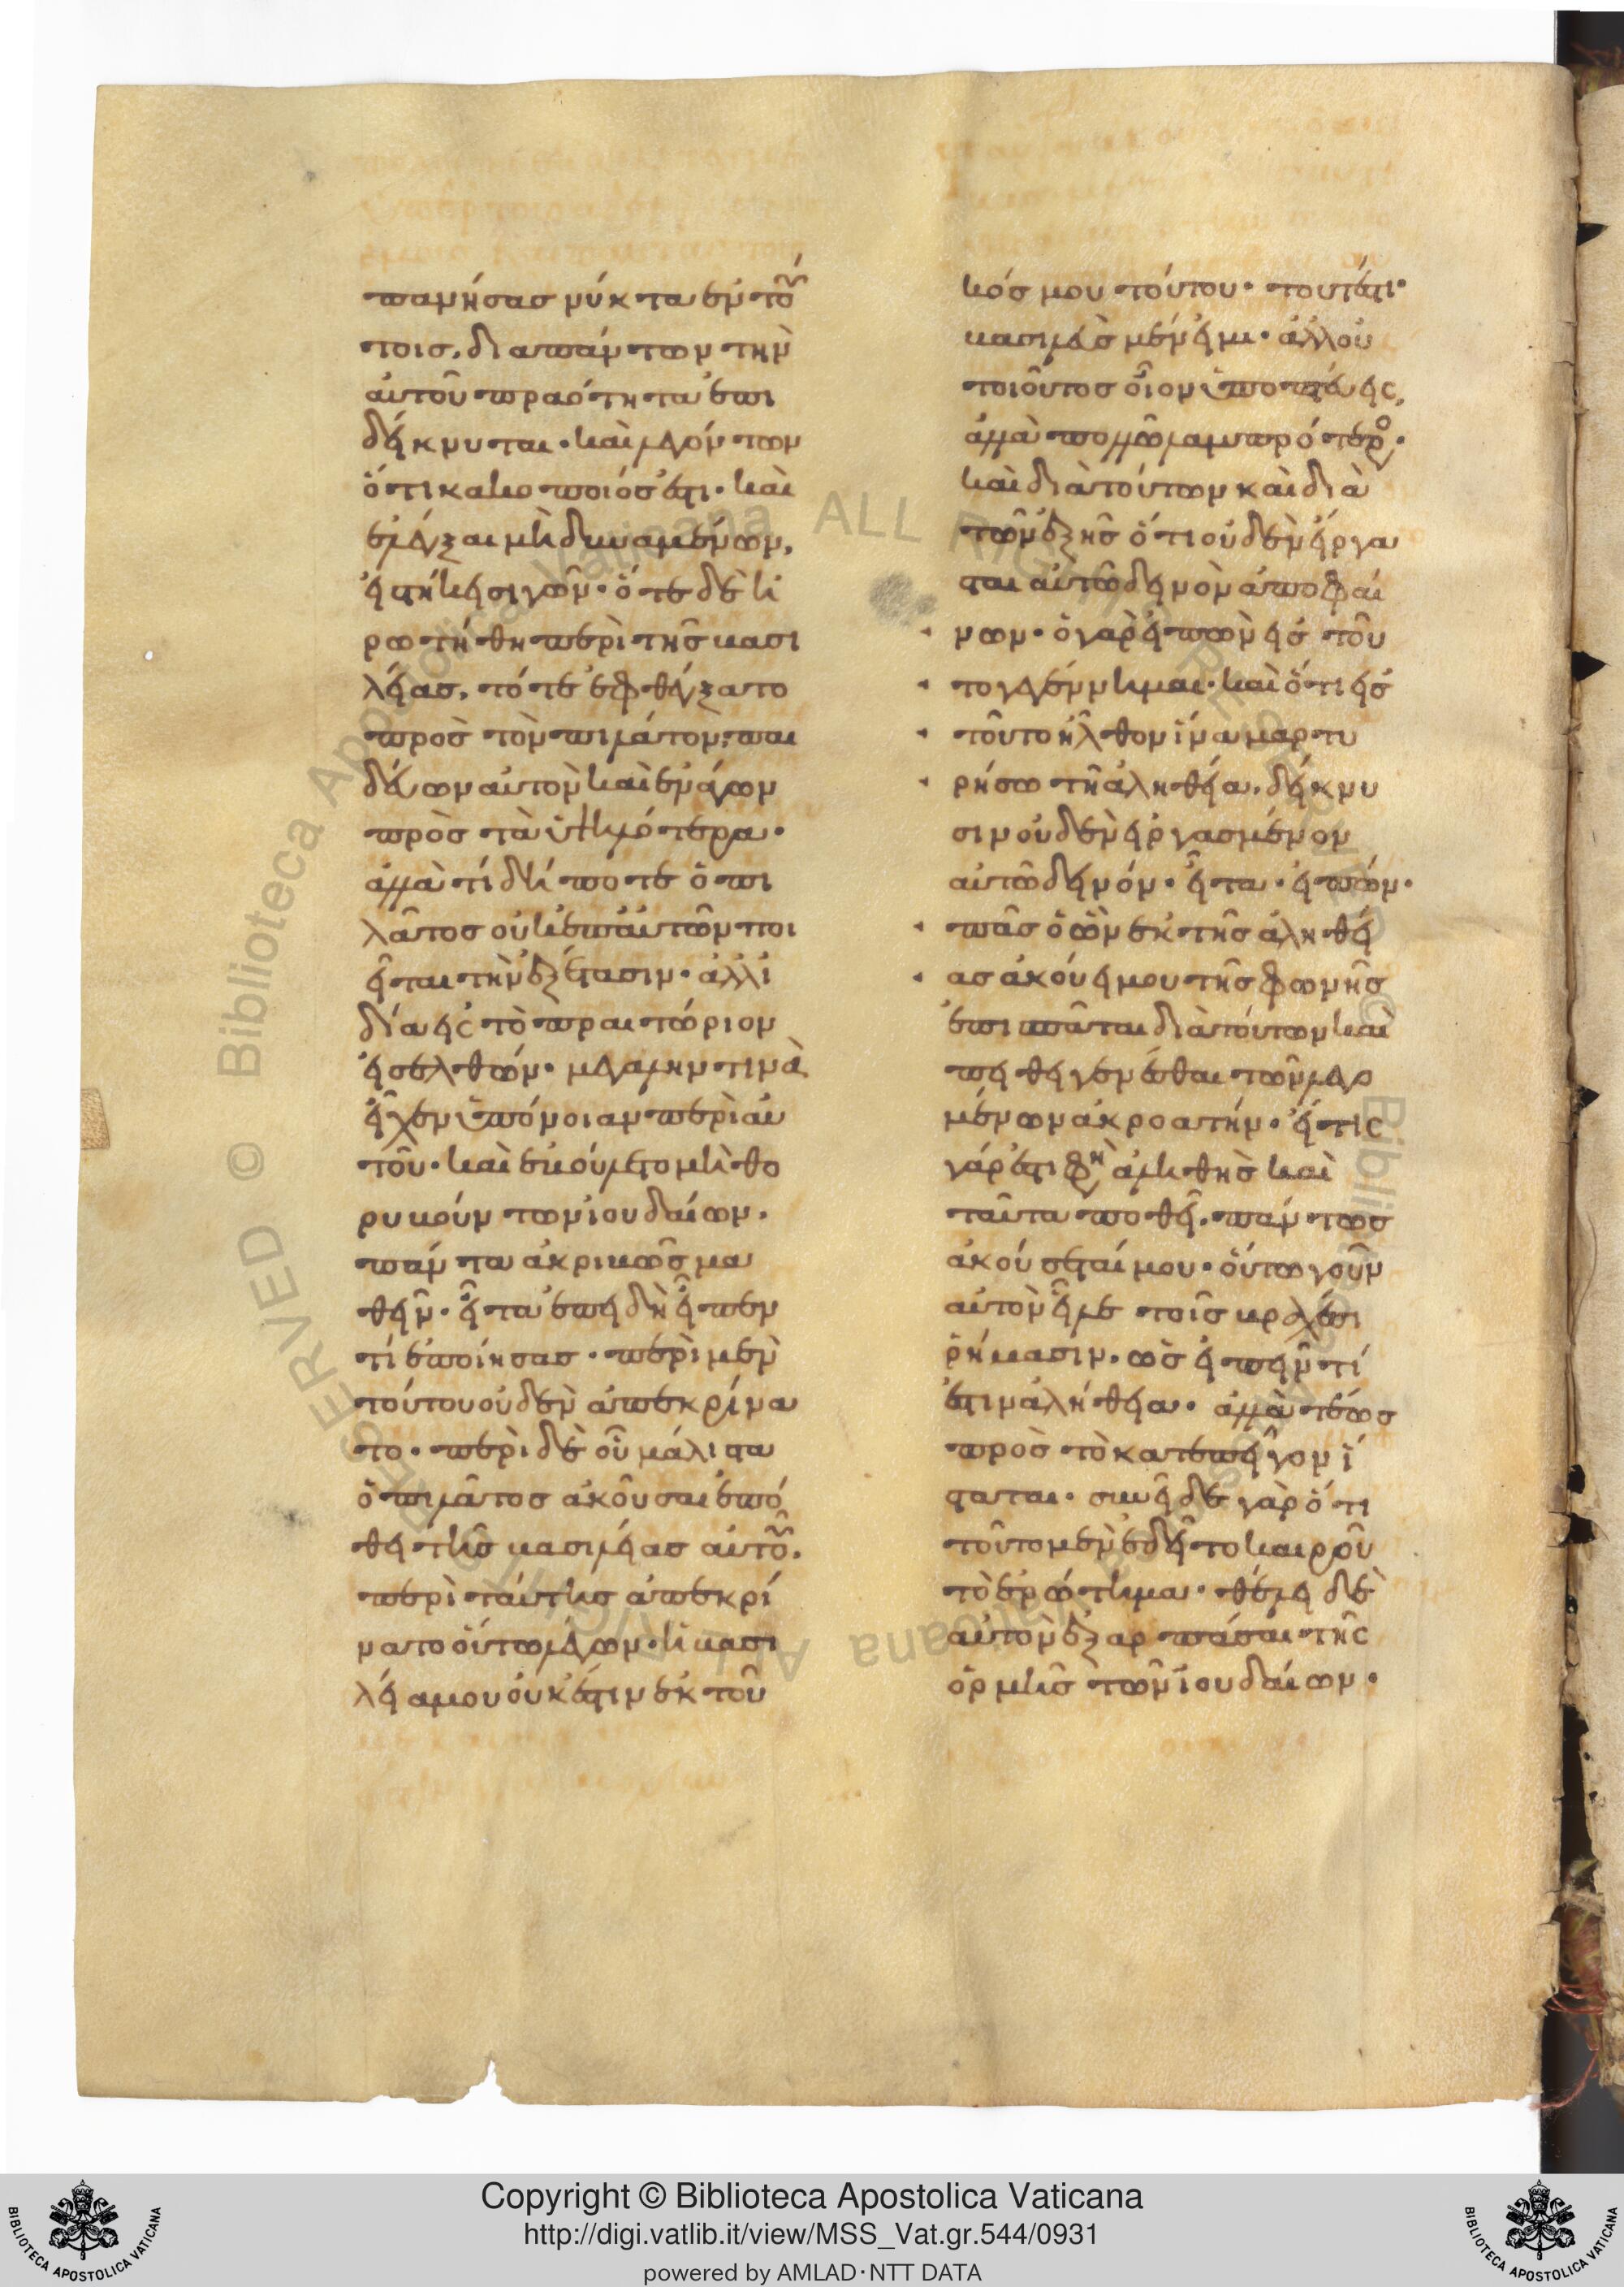 πανήσας νύκτα ἐν το
τοις, διαπάντων τὴν
αὐτοῦ πραότητα ἐπι
δείκνυται· καὶ λεγόντων
ὅτι κακοποιός ἐστι· καὶ
ἐλέγξαι μὴ δυναμένων,
εἱστήκει σιγῶν· ὅτε δὲ ἠ
ρωτήθη περὶ τῆς βασι
λείας, τότε ἐφθέγξατο
πρὸς τὸν πιλάτον· παι
δεύων αὐτὸν καὶ ἐνάγων
πρὸς τὰ ὑψηλότερα·
ἀλλὰ τί δήποτε ὁ πι
λᾶτος οὐκ ἐπαὐτῶν ποι
εῖται τὴν ἐξέτασιν· ἀλλ ἰ
δία εἰς τὸ πραιτώριον
εἰσελθών· μεγάλην τινὰ
εἶχεν ὑπόνοιαν περὶ αὐ
τοῦ· καὶ ἐβούλετο μὴ θο
ρυβούντων ἰουδαίων,
πάντα ἀκριβῶς μα
θεῖν· εἶτα ἐπειδὴ εἶπεν
τί ἐποίησας· περὶ μὲν
τούτου οὐδὲν ἀπεκρίνα
το· περὶ δὲ οὗ μάλιστα
ὁ πιλᾶτος ἀκοῦσαι ἐπό
θει τῆς βασιλείας αὐτοῦ,
περὶ ταύτης ἀπεκρί
νατο οὕτω λέγων· ἡ βασι
λεία μου οὐκ ἔστιν ἐκ τοῦ
κόσμου τούτου· τουτέστι·
βασιλεὺς μέν εἰμι· ἀλλ οὐ
τοιοῦτος οἷον ὑποπτεύεις,
ἀλλὰ πολλῶ λαμπρότερος·
καὶ διὰ τούτων καὶ διὰ
τῶν ἑξῆς ὅτι οὐδὲν εἴργα
σται αὐτῶ δεινὸν ἀποφαί
νων· ὁ γὰρ εἰπὼν εἰς τοῦ
το γεγέννημαι· καὶ ὅτι εἰς
τοῦτο ἦλθον ἵνα μαρτυ
ρήσω τῆ ἀληθεία, δείκνυ
σιν οὐδὲν εἰργασμένον
αὐτῶ δεινόν· εἶτα· εἰπών·
πᾶς ὁ ὢν ἐκ τῆς ἀληθεί
ας ἀκούει μου τῆς φωνῆς
ἐπισπᾶται διὰ τούτων καὶ
πείθει γενέσθαι τῶν λεγο
μένων ἀκροατήν· εἴ τις
γάρ ἐστι φησὶν ἀληθὴς καὶ
ταῦτα ποθεῖ, πάντως
ἀκούσεταί μου· οὕτω γοῦν
αὐτὸν εἷλε τοῖς βραχέσι
ῥήμασιν, ὡς εἰπεῖν τί
ἐστιν ἀλήθεια· ἀλλὰ τέως
πρὸς τὸ κατεπεῖγον ἵ
σταται· συνεῖδε γὰρ ὅτι
τοῦτο μὲν ἐδεῖτο καιροῦ
τὸ ἐρώτημα· θέλει δὲ
αὐτὸν ἐξαρπάσαι τῆς
ὁρμῆς τῶν ἰουδαίων·
© Biblioteca Apostolica Vaticana ALL RIGHTS RESERVED
Copyright © Biblioteca Apostolica Vaticana
http://digi.vatlib.it/view/MSS_Vat.gr.544/0931
powered by AMLAD·NTT DATA
BIBLIOTECA APOSTOLICA VATICANA
BIBLIOTECA APOSTOLICA VATICANA